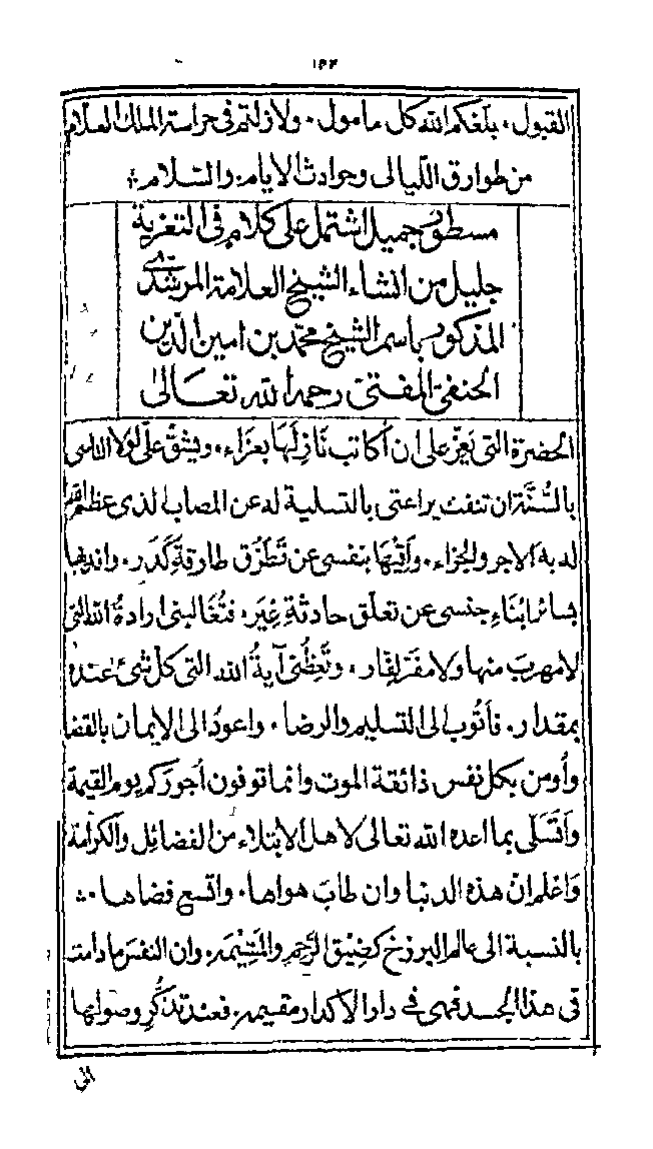 ١٣٣
القبول. بلغكم الله كل مامول. ولازلتم في حراسة الملك العلام
من طوارق الليالى وحوادث الايام. والسلام
مسطور جميل اشتمل على كلام في التعزية
جليل من انشاء الشيخ العلامة المرشدى
المذكور باسم الشيخ محمد بن امين الدين
الحنفى المفتى رحمه الله تعالى
الحضرة التى يَعِزّ على ان أكاتب نَازِلَهَا بعزاء. ويشقّ علىّ لولا التاسى
بالسُّنَّة ان تنفث يراعتى بالتسلية له عن المصاب الذى عظم الله
له به الاجر والجزاء. وَأقِيْهَا بنفسى عن تَطَرُّق طارقةِ كَدَر. وافديها
بسائر ابْنَاءِ جنسى عن تعلق حادثةِ غِيَر. فتُغَالبنى ارادةُ الله التى
لا مهربَ منها ولا مفرّ لِفَار. وتَعِظُنى آيةُ الله التى كل شئ عنده
بمقدار. فأتُوب الى التسليم والرضا. واعودُ الى الايمان بالقضا
وأومن بكل نفس ذائقة الموت وانما توفون أجوركم يوم القيمة
واتَسَلّى بما اعده الله تعالى لاهل الابتلاء من الفضائل والكرامة
وَاعْلم انّ هذه الدنيا وان طابَ هواها. واتسع فضاها.
بالنسبة الى عالم البرزخ كضِيْق الرَّحِم والمَشِيْمَه. وان النفس مادامت
فى هذا الجسد فهى فى دار الاكدار مقيمه. فعند تذكّرِ وصولها
الى